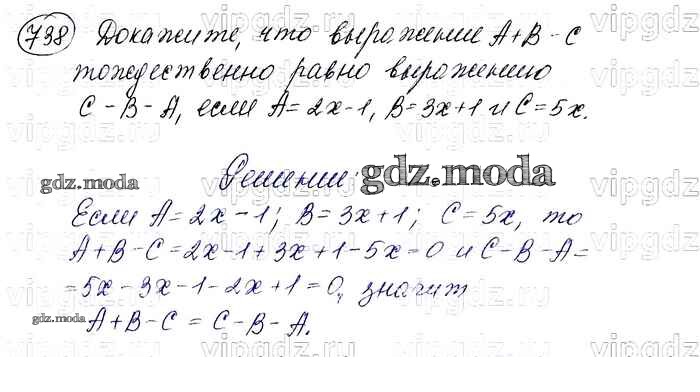 738 Докажите, что выражение A+B-C
тождественно равно выражению
C-B-A, если A=2x-1, B=3x+1 и C=5x.
Решение:
gdz.moda
gdz.moda
Если A=2x-1; B=3x+1; C=5x, то
A+B-C=2x-1+3x+1-5x=0 и C-B-A=
=5x-3x-1-2x+1=0, значит
gdz.moda
A+B-C=C-B-A.